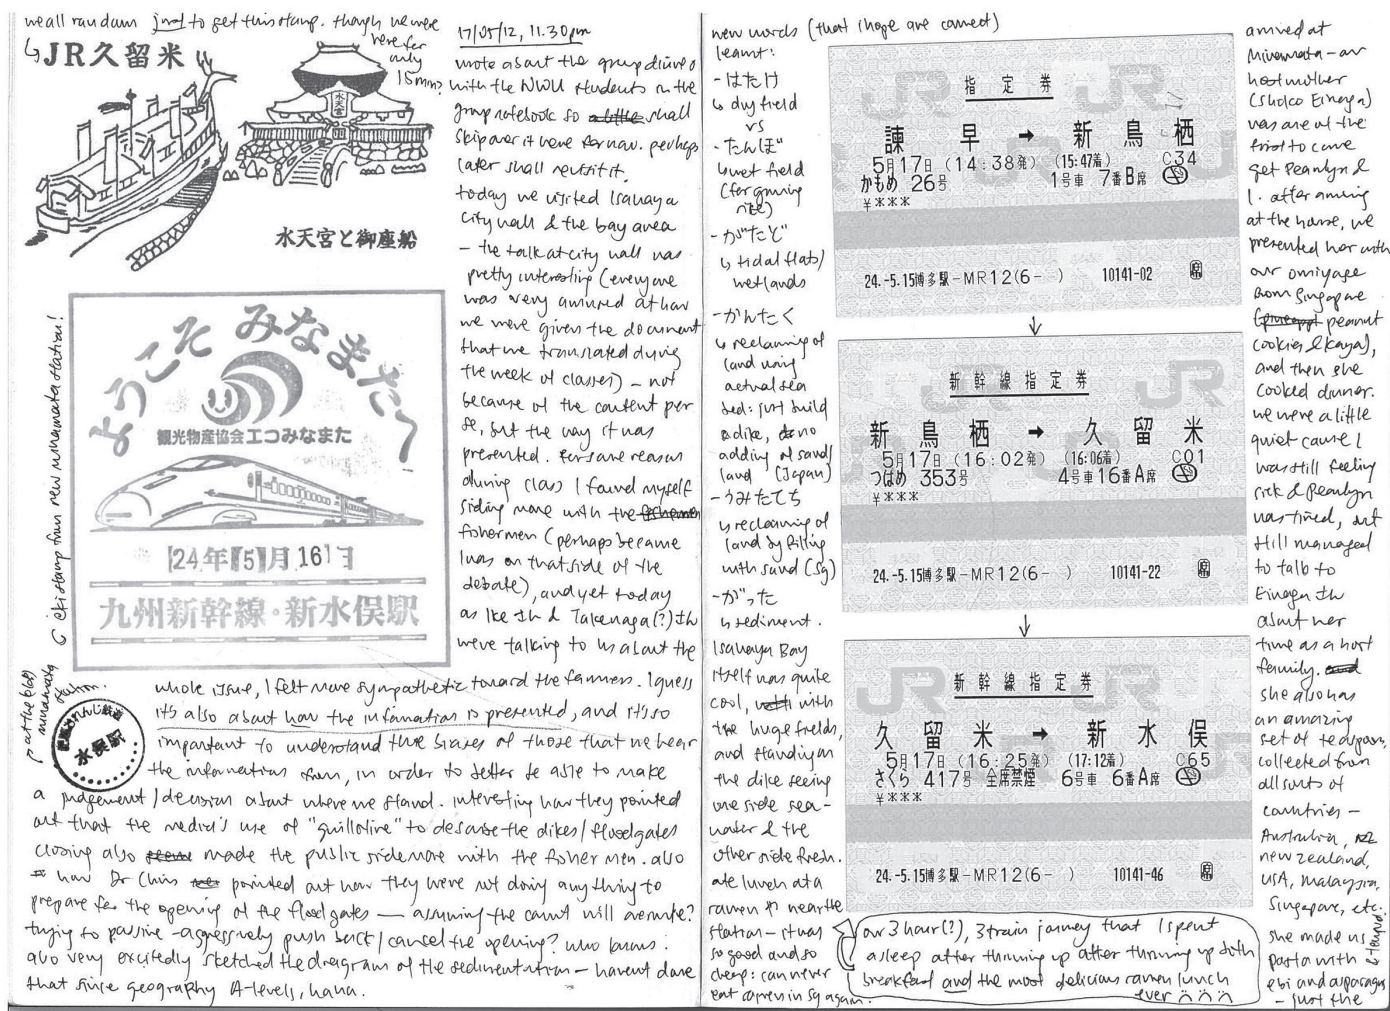 we all ran down just to get this stamp. though we were
here for
only
15min?
JR久留米
水天宮
水天宮と御座船
ようこそ みなまたへ
観光物産協会エコみなまた
24年 5月 16日
九州新幹線・新水俣駅
ekistamp from new minamata station!
at the (old)
minamata
station.
肥薩おれんじ鉄道
水俣駅
17/05/12, 11.30pm
wrote about the group dinner
with the NWU students in the
group notebook so a little shall
skip over it here for now. perhaps
later shall revisit it.
today we visited Isahaya
city hall & the bay area
- the talk at city hall was
pretty interesting (everyone
was very amused at how
we were given the document
that we translated during
the week of classes) - not
because of the content per
se, but the way it was
presented. for some reason
during class I found myself
siding more with the fishermen
fishermen (perhaps because
I was on that side of the
debate), and yet today
as Ike Sh & Takenaga(?) Sh
were talking to us about the
whole issue, I felt more sympathetic toward the farmers. I guess
it's also about how the information is presented, and it's so
important to understand the biases of those that we hear
the information from, in order to better be able to make
a judgement/decision about where we stand. interesting how they pointed
out that the media's use of "guillotine" to describe the dikes/floodgates
closing also made the public side more with the fishermen. also
how Dr Chins pointed out how they were not doing anything to
prepare for the opening of the floodgates — assuming the court will overrule?
trying to passive-aggressively push back/cancel the opening? who knows.
also very excitedly sketched the diagram of the sedimentation - havent done
that since geography A-levels, haha.
new words (that i hope are correct)
learnt:
- はたけ
↳ dry field
vs
- たんぼ
↳ wet field
(for growing
rice)
- がたど
↳ tidal flats/
wetlands
- かんたく
↳ reclaiming of
land using
actual sea
bed: just build
a dike, no
adding of sand/
land (Japan)
- うみたてち
↳ reclaiming of
land by filling
with sand (Sg)
- がった
↳ sediment.
Isahaya Bay
itself was quite
cool, with
the huge fields,
and standing on
the dike seeing
one side sea-
water & the
other side fresh.
ate lunch at a
ramen near the
station - it was
so good and so
cheap: can never
eat ramen in sg again.
指定券
諫早 → 新鳥栖
5月17日 (14:38発) (15:47着) C34
かもめ 26号 1号車 7番B席
¥***
24.-5.15博多駅-MR12(6- ) 10141-02 席
↓
新幹線指定券
新鳥栖 → 久留米
5月17日 (16:02発) (16:06着) C01
つばめ 353号 4号車16番A席
¥***
24.-5.15博多駅-MR12(6- ) 10141-22 席
↓
新幹線指定券
久留米 → 新水俣
5月17日 (16:25発) (17:12着) C65
さくら 417号 全席禁煙 6号車 6番A席
¥***
24.-5.15博多駅-MR12(6- ) 10141-46 席
our 3 hour(?), 3 train journey that I spent
asleep after throwing up after throwing up both
breakfast and the most delicious ramen lunch
ever
arrived at
Minamata - our
host mother
(Shoko Einaga)
was one of the
first to come
get Pearlyn &
I. after arriving
at the house, we
presented her with
our omiyage
from Singapore
(peanut
cookies & kaya),
and then she
cooked dinner.
we were a little
quiet cause I
was still feeling
sick & Pearlyn
was tired, but
still managed
to talk to
Einaga Sh
about her
time as a host
family.
she also has
an amazing
set of teaspoons,
collected from
all sorts of
countries -
Australia, NZ
new zealand,
USA, Malaysia,
Singapore, etc.
she made us
pasta with
ebi and asparagus
- just the